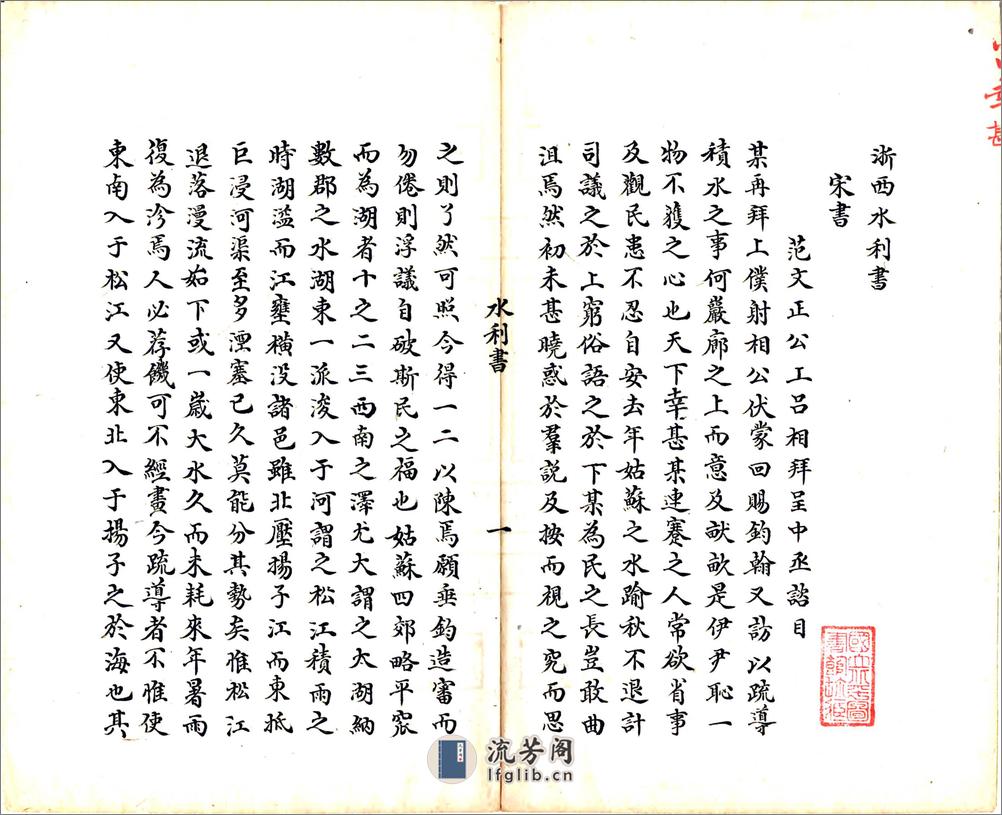 浙西水利書
宋書
范文正公上呂相拜呈中丞諮目
某再拜上僕射相公伏蒙回賜鈞翰又訪以疏導
積水之事何巖廊之上而意及畎畝是伊尹恥一
物不獲之心也天下幸甚某連蹇之人常欲省事
及觀民患不忍自安去年姑蘇之水踰秋不退計
司議之於上窮俗語之於下某為民之長豈敢曲
沮焉然初未甚曉惑於羣説及按而視之究而思
水利書
一
之則了然可照今得一二以陳焉願垂鈞造審而
勿倦則浮議自破斯民之福也姑蘇四郊略平窊
而為湖者十之二三西南之澤尤大謂之太湖納
數郡之水湖東一派浚入于河謂之松江積雨之
時湖溢而江壅橫没諸邑雖北壓揚子江而東抵
巨浸河渠至多湮塞已久莫能分其勢矣惟松江
退落漫流始下或一歲大水久而未耗來年暑雨
復為沴焉人必荐饑可不經畫今疏導者不惟使
東南入于松江又使東北入于揚子之於海也其
流芳阁
lfglib.cn